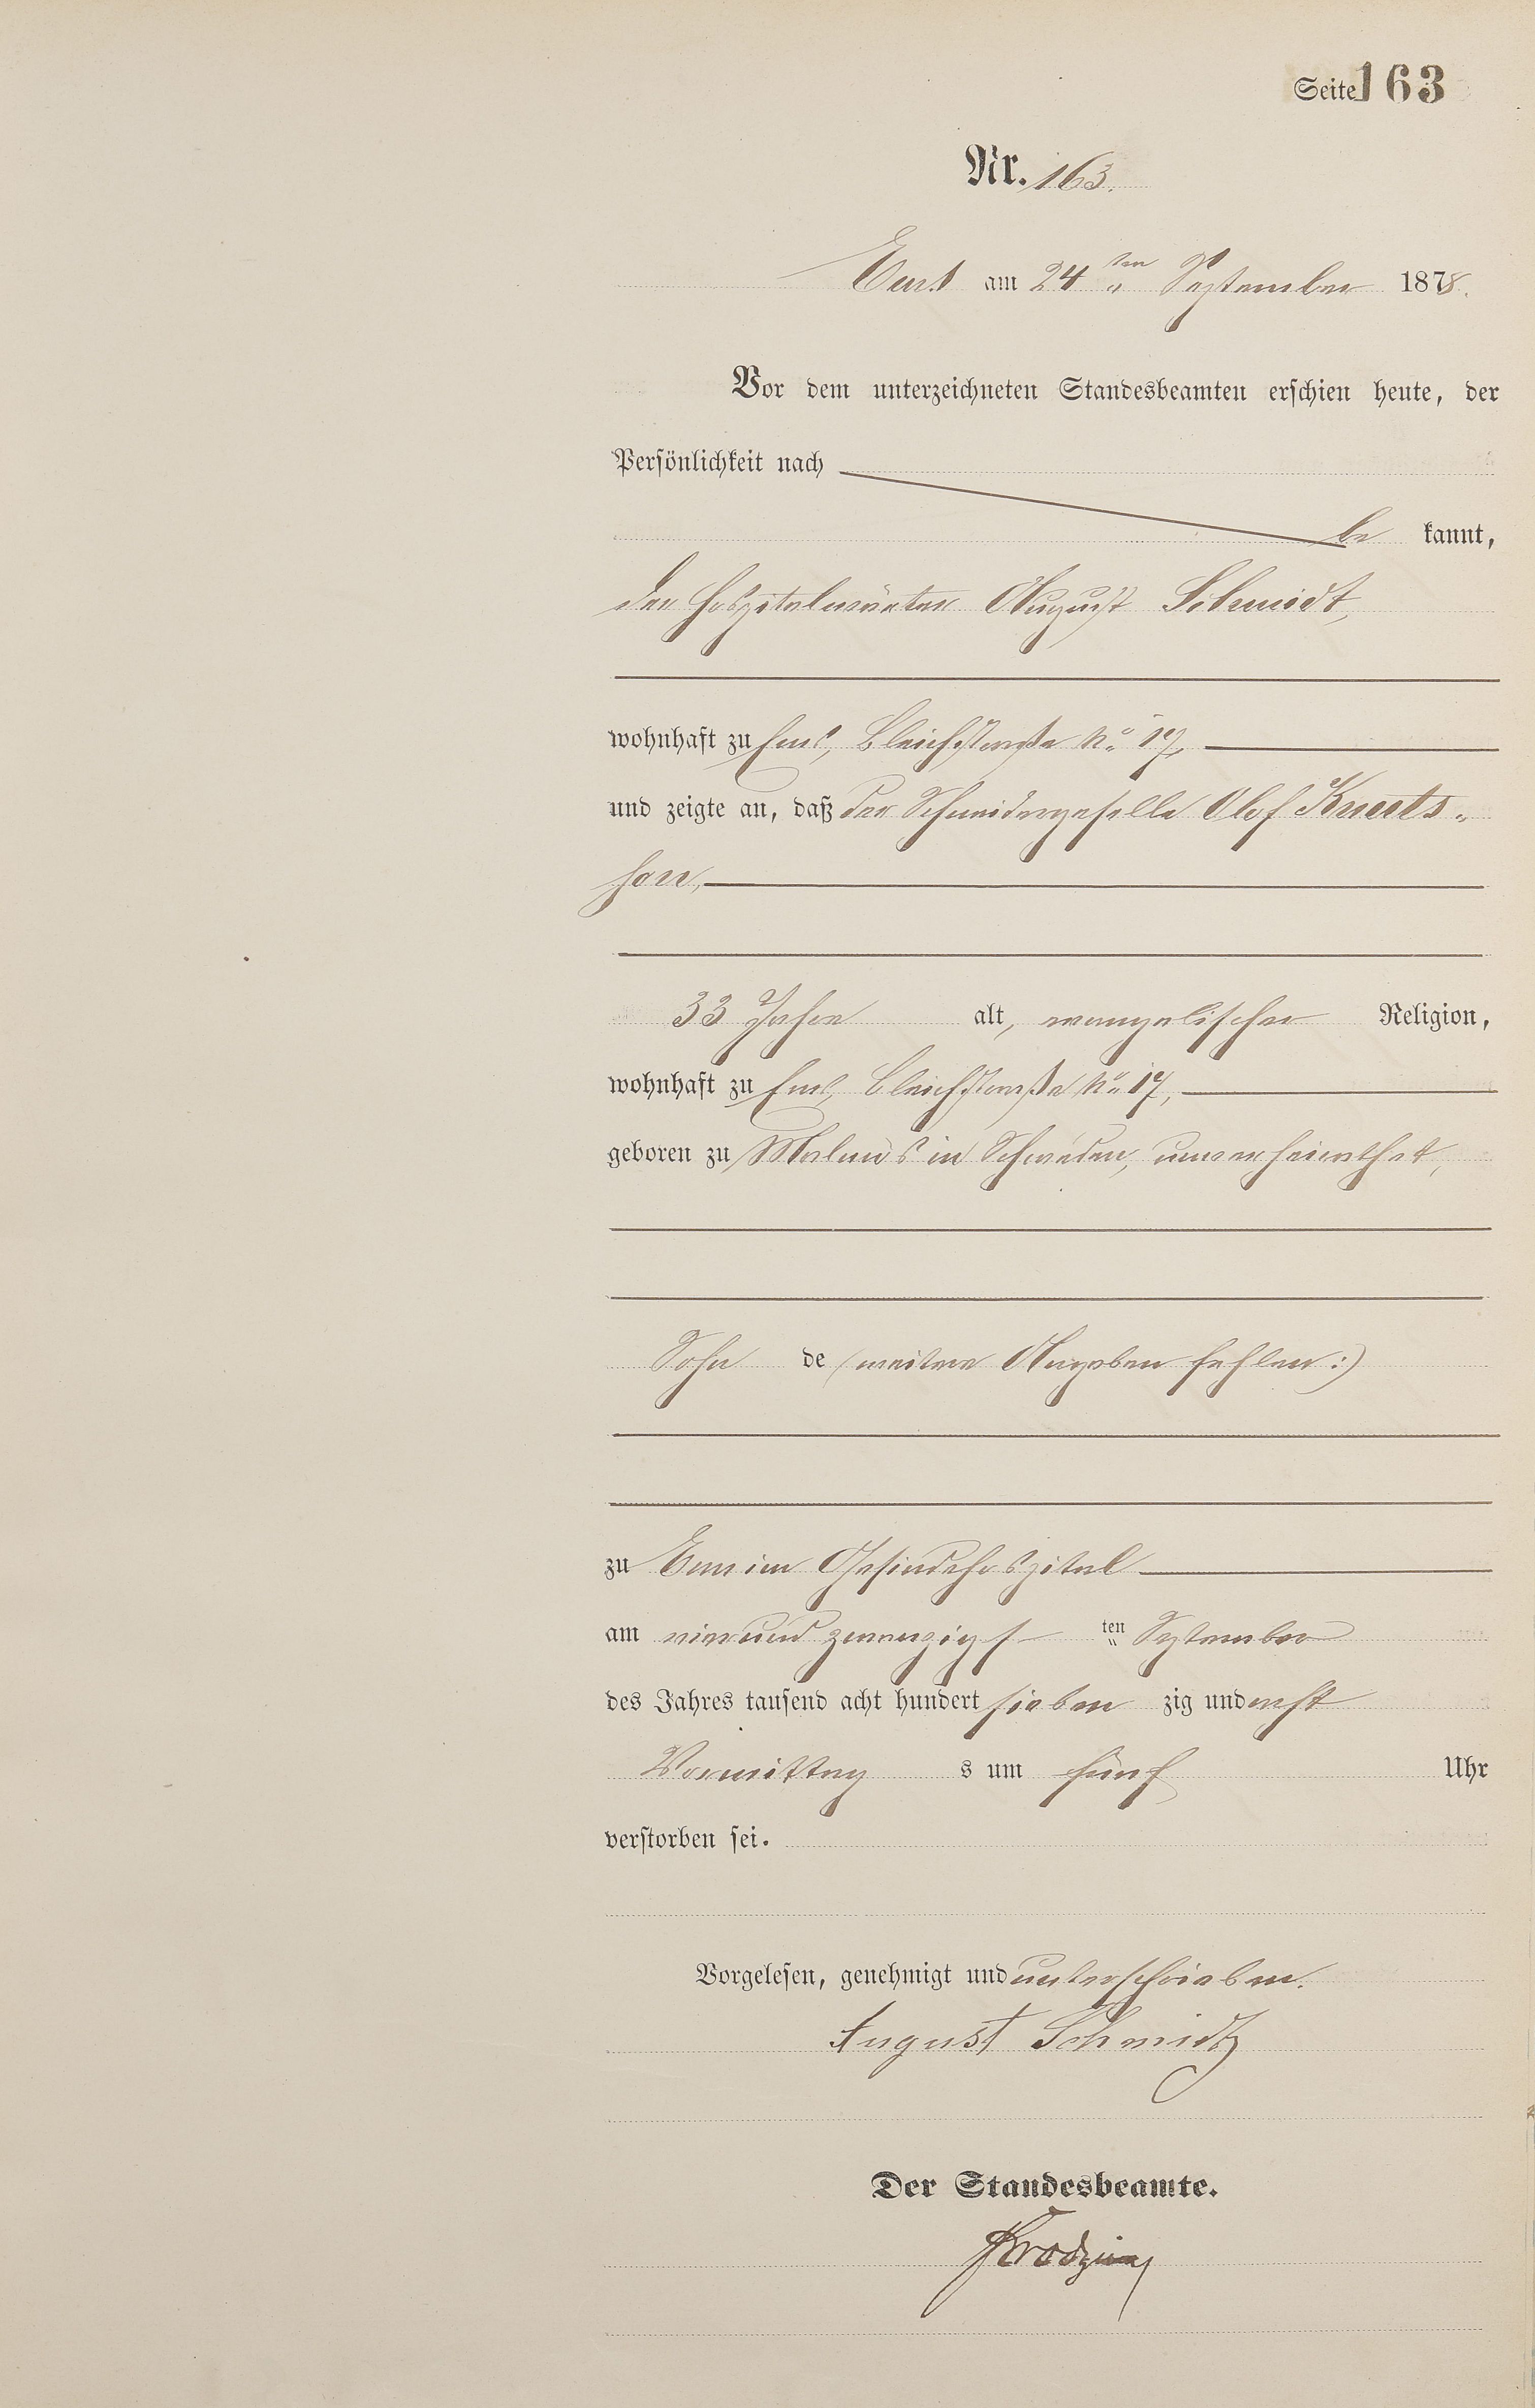 Seite 163
Nr. 163.
Ems am 24ten September 1878.
Vor dem unterzeichneten Standesbeamten erschien heute, der
Persönlichkeit nach
be kannt,
der Hospitalwärter August Schmidt,
wohnhaft zu Ems, Bleichstraße No 17,
und zeigte an, daß der Schneidergeselle Olof Knuts-
son,
33 Jahre alt, evangelischer Religion,
wohnhaft zu Ems, Bleichstraße No 17,
geboren zu in Schweden, unverheirathet,
Sohn de (weitere Angaben fehlen:)
zu Ems im Gesindehospital
am vierundzwanzigsten September
des Jahres tausend acht hundert siebenzig und acht
Vormittags um fünf Uhr
verstorben sei.
Vorgelesen, genehmigt und unterschrieben.
August Schmidt
Der Standesbeamte.